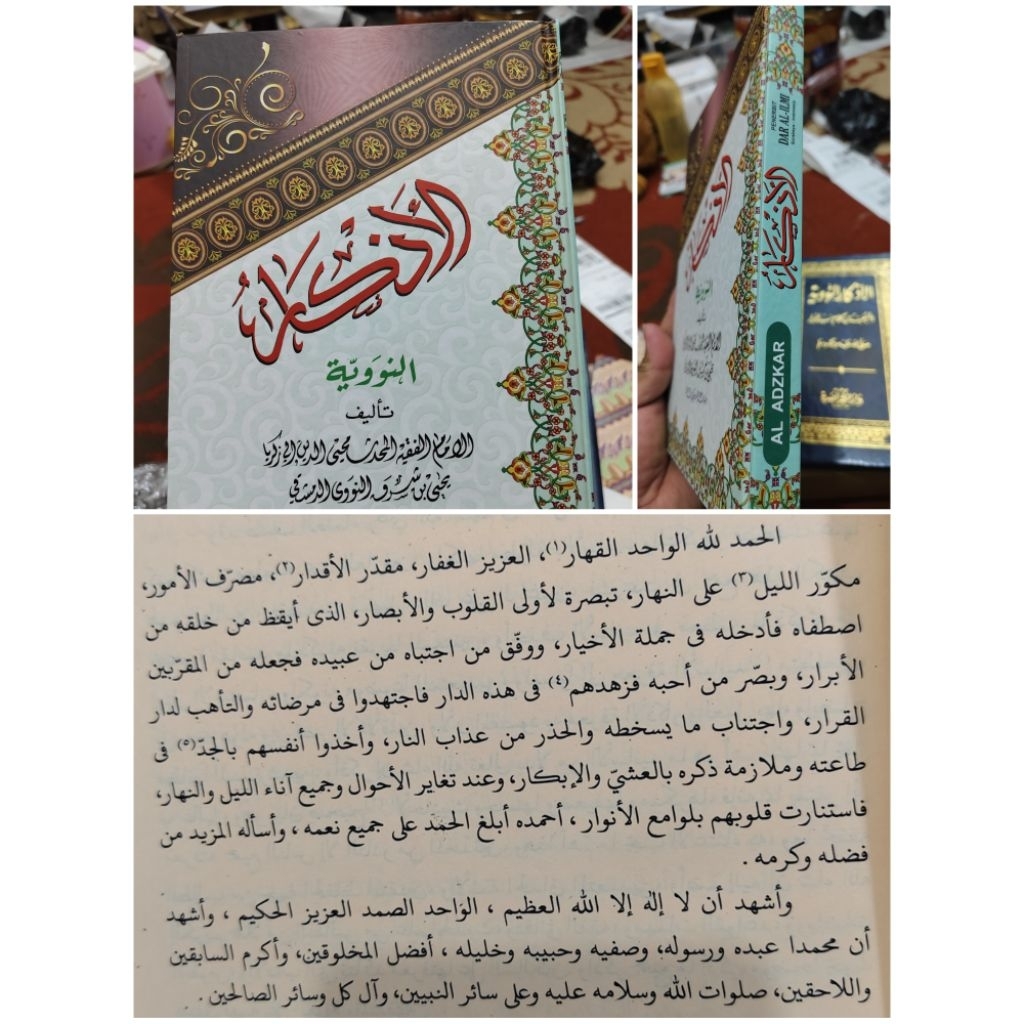 الأذكار
النووية
تأليف
الامام الفقيه المحدث محيي الدين أبي زكريا
يحيى بن شرف النووي الدمشقي
PENERBIT
DAR AL-ILMI
الأذكار
AL ADZKAR
الأذكار
النووية
تأليف
الحمد لله الواحد القهار(١)، العزيز الغفار، مقدّر الأقدار(٢)، مصرّف الأمور،
مكوّر الليل(٣) على النهار، تبصرة لأولى القلوب والأبصار، الذى أيقظ من خلقه من
اصطفاه فأدخله فى جملة الأخيار، ووفّق من اجتباه من عبيده فجعله من المقرّبين
الأبرار، وبصّر من أحبه فزهدهم(٤) فى هذه الدار فاجتهدوا فى مرضاته والتأهب لدار
القرار، واجتناب ما يسخطه والحذر من عذاب النار، وأخذوا أنفسهم بالجدّ(٥) فى
طاعته وملازمة ذكره بالعشيّ والإبكار، وعند تغاير الأحوال وجميع آناء الليل والنهار،
فاستنارت قلوبهم بلوامع الأنوار، أحمده أبلغ الحمد على جميع نعمه، وأسأله المزيد من
فضله وكرمه.
وأشهد أن لا إله إلا الله العظيم، الواحد الصمد العزيز الحكيم، وأشهد
أن محمدا عبده ورسوله، وصفيه وحبيبه وخليله، أفضل المخلوقين، وأكرم السابقين
واللاحقين، صلوات الله وسلامه عليه وعلى سائر النبيين، وآل كل وسائر الصالحين.